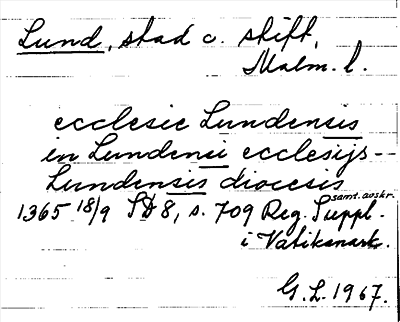 Lund, stad o. stift,
Malm. l.
ecclesie Lundensis
en Lundensi ecclesijs--
Lundensis diocesis
samt. avskr.
1365 18/9 SD 8, s. 709 Reg. Suppl.
i Vatikanark.
G. L. 1967.